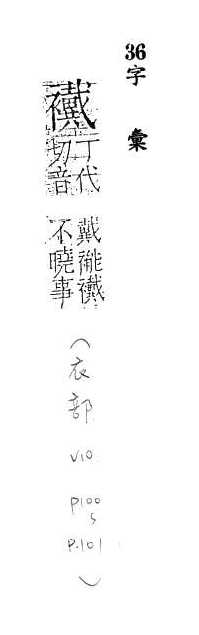 36字彙
襶
丁代
切音
戴褦襶
不曉事
(衣部 V10 P100 ~ P.101)